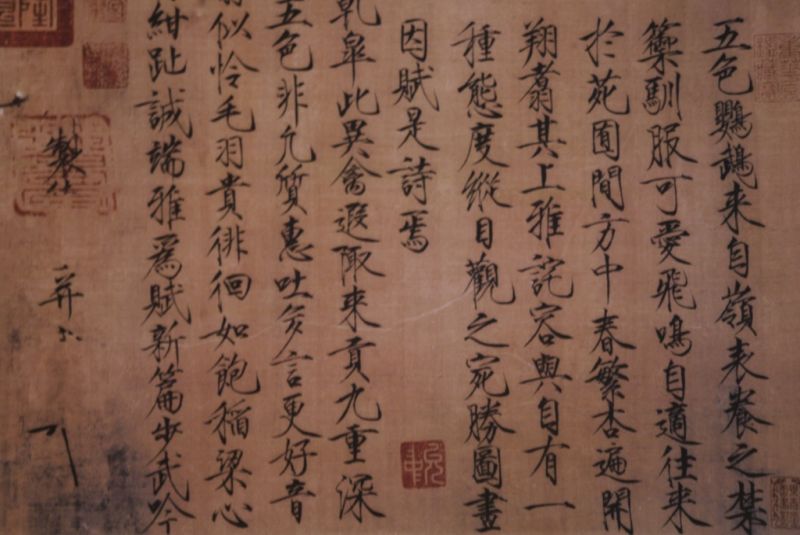 五色鸚鵡来自嶺表養之禁
籞馴服可愛飛鳴自適往来
於苑囿間方中春繁杏遍開
翔翥其上雅詫容與自有一
種態度縱目觀之宛勝圖畫
因賦是詩焉
乾皐此異禽遐陬来貢九重深
五色非凡質惠吐多言更好音
似怜毛羽貴徘徊如飽稻粱心
紺趾誠端雅為賦新篇步武吟
製